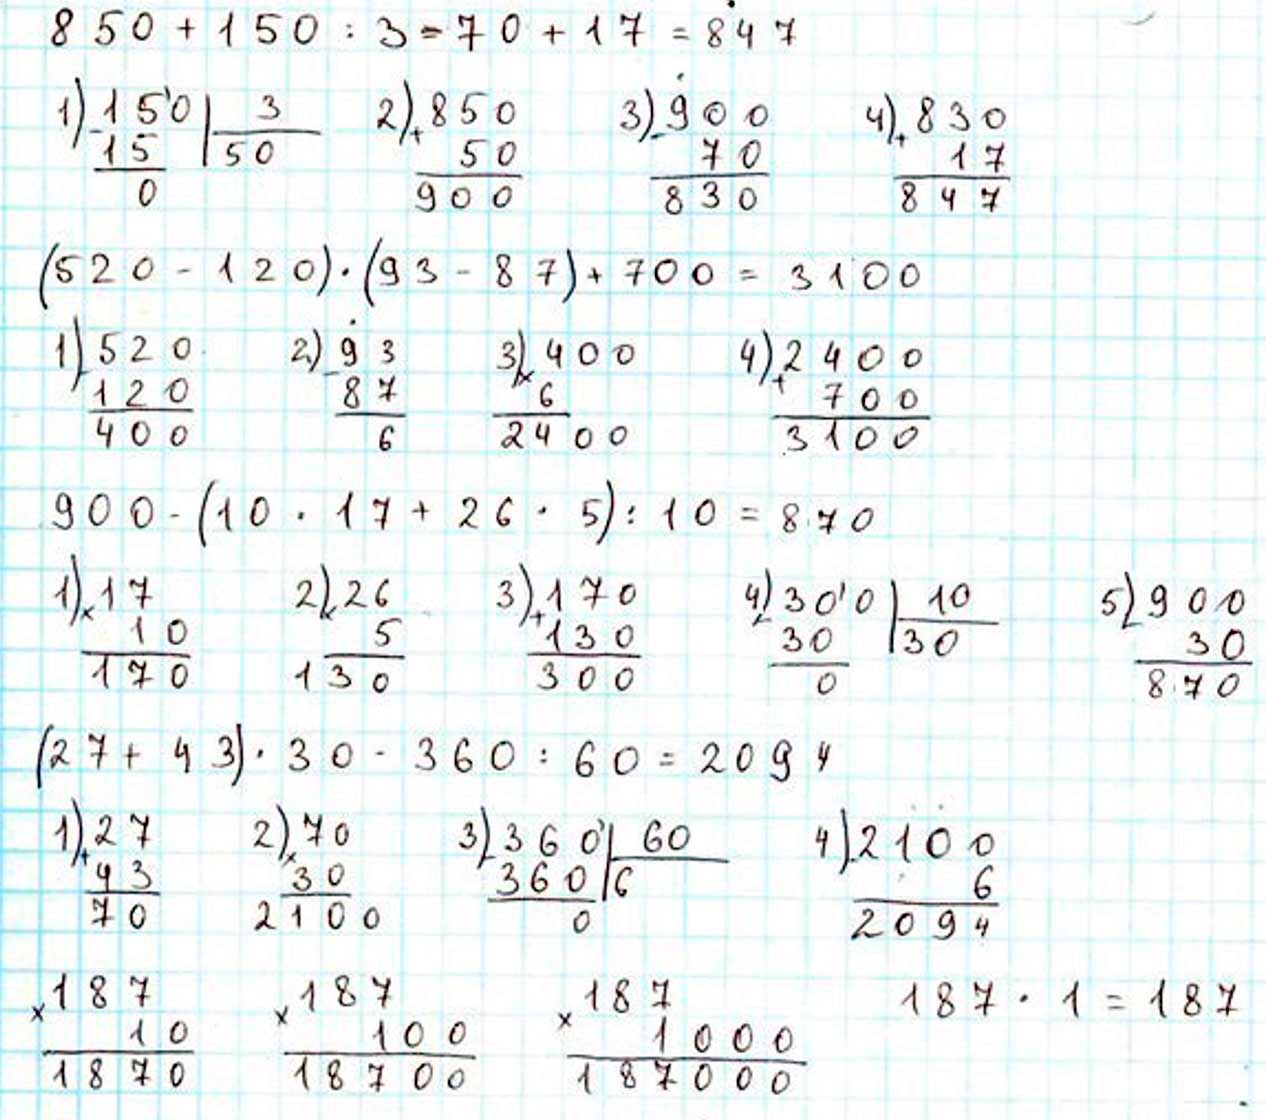 850 + 150 : 3 - 70 + 17 = 847
1) 150 | 3   2) 850   3) 900   4) 830
- 15 | 50   + 50   - 70   + 17
0   900   830   847
(520 - 120) · (93 - 87) + 700 = 3100
1) 520   2) 93   3) 400   4) 2400
- 120   - 87   × 6   + 700
400   6   2400   3100
900 - (10 · 17 + 26 · 5) : 10 = 870
1) 17   2) 26   3) 170   4) 300 | 10   5) 900
× 10   × 5   + 130   - 30 | 30   - 30
170   130   300   0   870
(27 + 43) · 30 - 360 : 60 = 2094
1) 27   2) 70   3) 360 | 60   4) 2100
+ 43   × 30   - 360 | 6   - 6
70   2100   0   2094
× 187   × 187   × 187   187 · 1 = 187
10   100   1000
1870   18700   187000